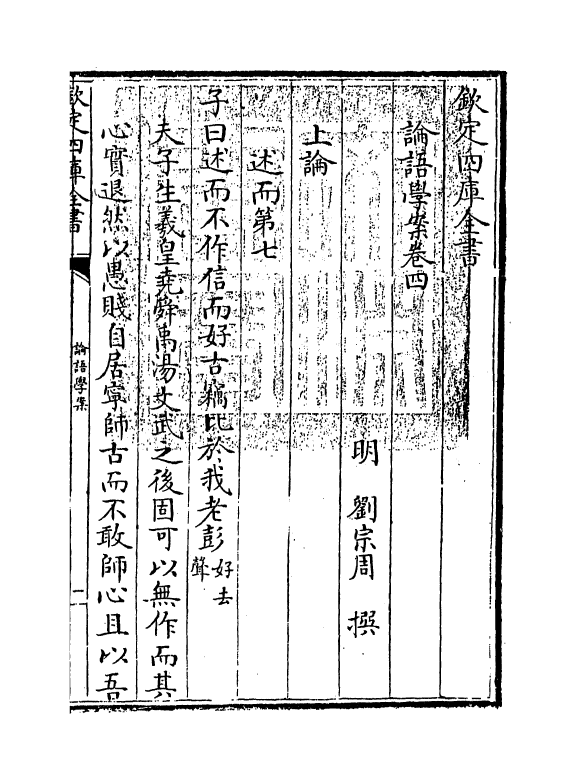 欽定四庫全書
論語學案卷四
明 劉宗周 撰
上論
述而第七
子曰述而不作信而好古竊比於我老彭好去聲
夫子生羲皇堯舜禹湯文武之後固可以無作而其
心實退然以愚賤自居寧師古而不敢師心且以吾
欽定四庫全書
論語學案
一